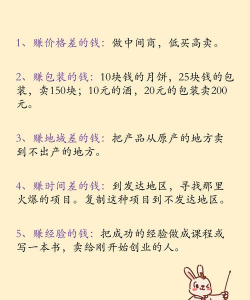 1、赚价格差的钱：做中间商，低买高卖。
2、赚包装的钱：10块钱的月饼，25块钱的包
装，卖150块；10元的酒，20元的包装卖200
元。
3、赚地域差的钱：把产品从原产的地方卖
到不出产的地方。
4、赚时间差的钱：到发达地区，寻找那里
火爆的项目。复制这种项目到不发达地区。
5、赚经验的钱：把成功的经验做成课程或
写一本书，卖给刚开始创业的人。